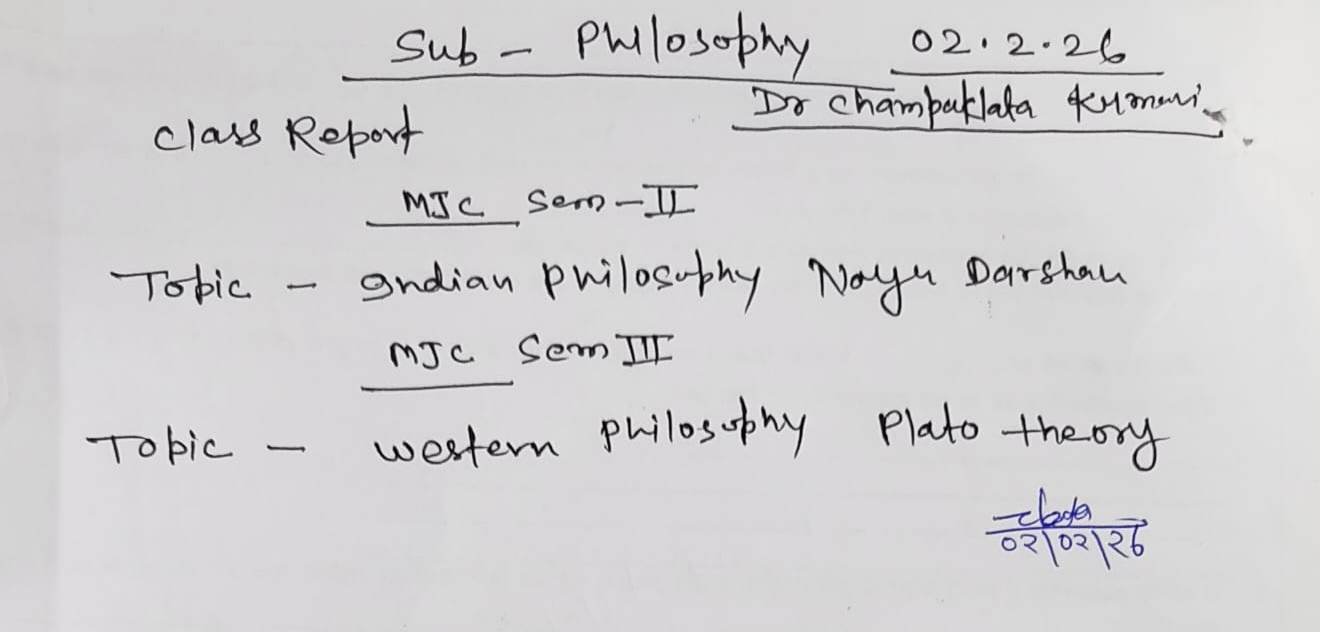 Sub - Philosophy 02.2.26
Dr Champaklata Kumari
Class Report
MJC Sem-II
Topic - Indian Philosophy Nayu Darshan
MJC Sem III
Topic - western philosophy Plato theory
02/02/26